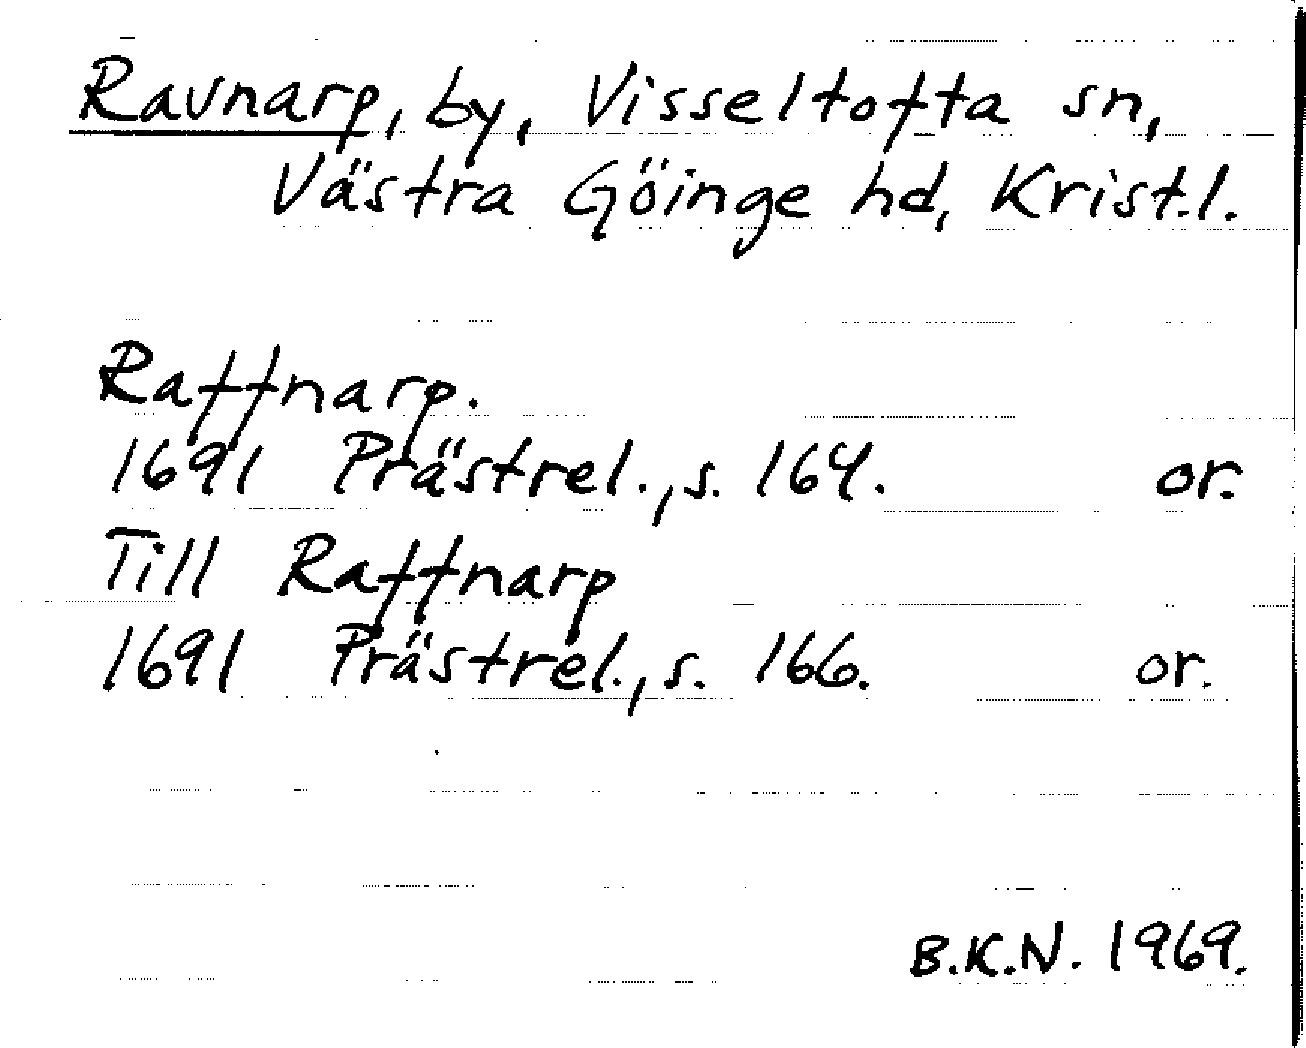 Ravnarp, by, Visseltofta sn,
Västra Göinge hd, Krist.l.
Raffnarp.
1691 Prästrel., s. 164. or.
Till Raffnarp
1691 Prästrel., s. 166. or.
B.K.N. 1969.